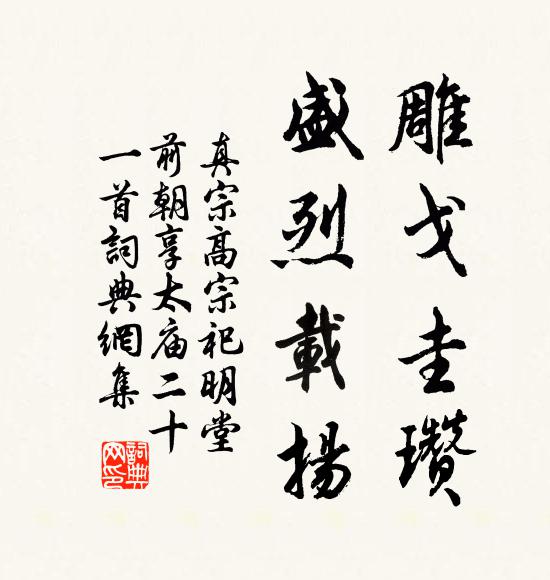 雕戈圭瓚
盛烈載揚
真宗高宗祀明堂
前朝享太庙二十
一首詞典網集
詞典网印